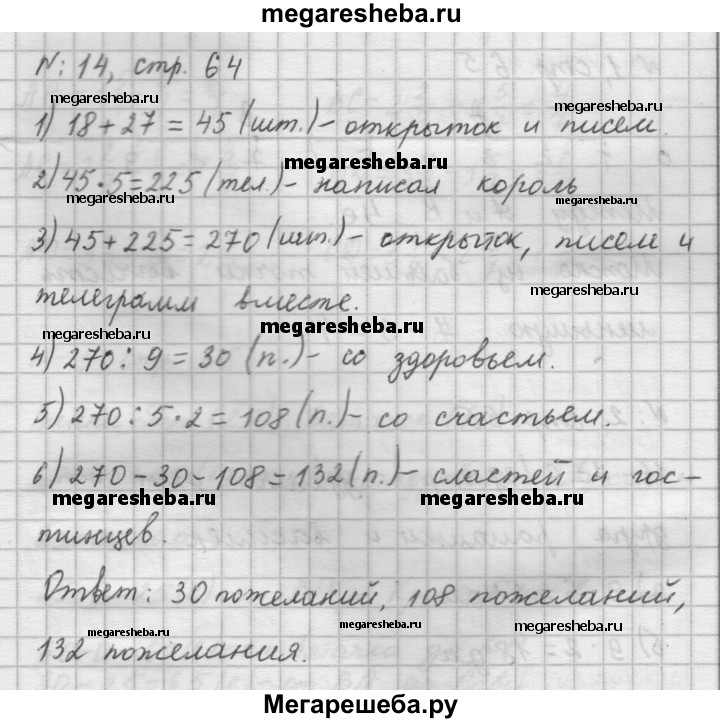 megaresheba.ru
№: 14, стр. 64
megaresheba.ru
megaresheba.ru
1) 18 + 27 = 45 (шт.) - открыток и писем.
megaresheba.ru
2) 45 · 5 = 225 (тел.) - написал король
megaresheba.ru
megaresheba.ru
3) 45 + 225 = 270 (шт.) - открыток, писем и
телеграмм вместе.
megaresheba.ru
megaresheba.ru
megaresheba.ru
4) 270 : 9 = 30 (п.) - со здоровьем.
5) 270 : 5 · 2 = 108 (п.) - со счастьем.
6) 270 - 30 - 108 = 132 (п.) - сластей и гос-
megaresheba.ru
megaresheba.ru
тинцев.
Ответ: 30 пожеланий, 108 пожеланий,
megaresheba.ru
megaresheba.ru
megaresheba.ru
132 пожелания.
Мегарешеба.ру